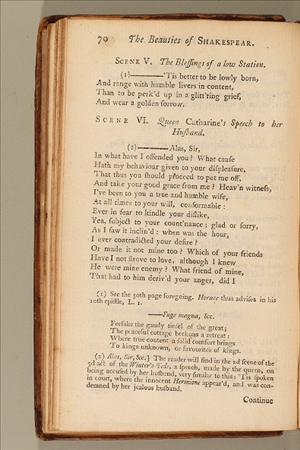 70 The Beauties of SHAKESPEAR.
SCENE V. The Blessings of a low Station.
(1)———'Tis better to be lowly born,
And range with humble livers in content,
Than to be perk'd up in a glitt'ring grief,
And wear a golden sorrow.
SCENE VI. Queen Catharine's Speech to her
Husband.
(2)———Alas, Sir,
In what have I offended you? What cause
Hath my behaviour given to your displeasure,
That thus you should proceed to put me off,
And take your good grace from me? Heav'n witness,
I've been to you a true and humble wife,
At all times to your will, conformable:
Ever in fear to kindle your dislike,
Yea, subject to your count'nance; glad or sorry,
As I saw it inclin'd: when was the hour,
I ever contradicted your desire?
Or made it not mine too? Which of your friends
Have I not strove to love, although I knew
He were mine enemy? What friend of mine,
That had to him deriv'd your anger, did I
(1) See the 30th page foregoing. Horace thus advises in his
10th epistle, L. 1.
——Fuge magna, &c.
Forsake the gaudy tinsel of the great;
The peaceful cottage beckons a retreat:
Where true content a solid comfort brings
To kings unknown, or favourites of kings.
(2) Alas, Sir, &c.] The reader will find in the 2d scene of the
3d act of the Winter's Tale, a speech, made by the queen, on
being accused by her husband, very similar to this: 'Tis spoken
in court, where the innocent Hermione appear'd, and was con-
demned by her jealous husband.
Continue